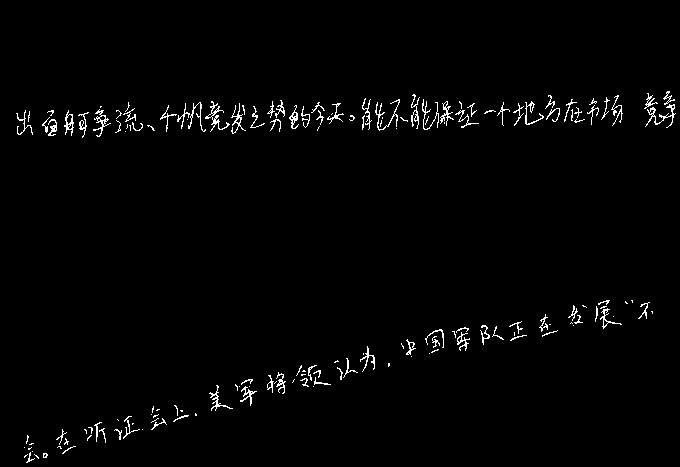 出百舸争流、千帆竞发之势的今天。能不能保证一个地方在市场竞争
会。在听证会上，美军将领认为，中国军队正在发展“不